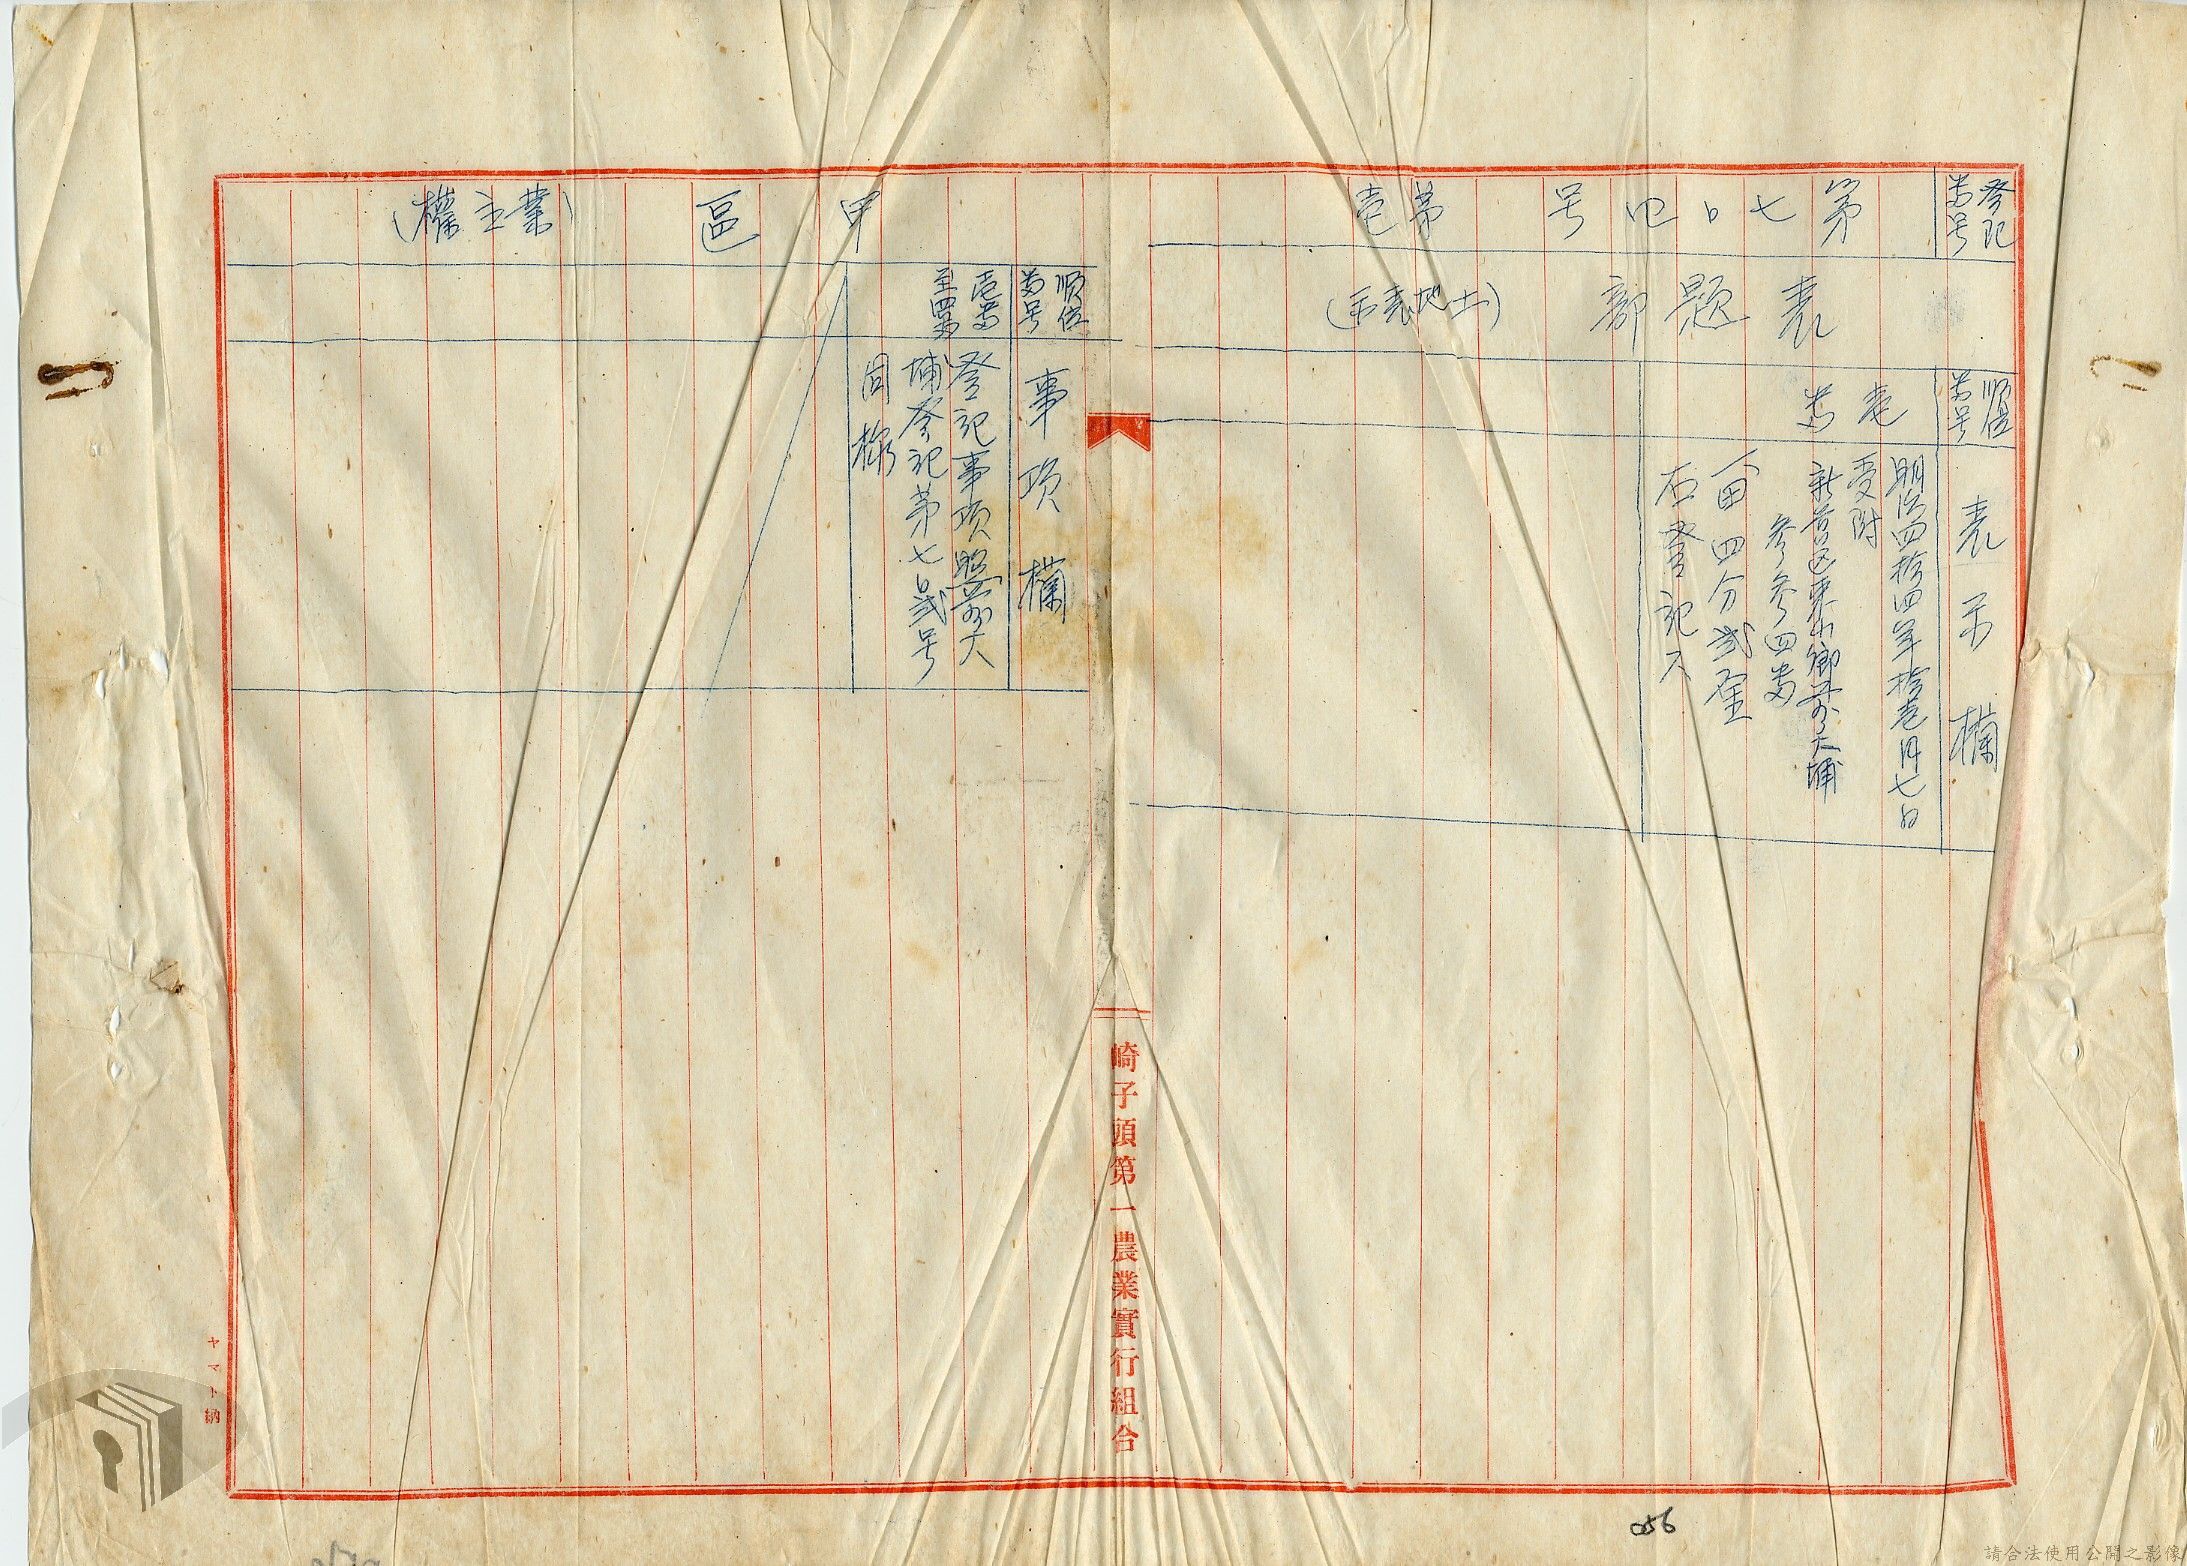 登記
番号
第七〇四号 第壱
表題部(土地表示)
順位
番号
表示欄
壱番
明治四拾四年拾壱月七日
受附
新営区東山御前大埔
参参四番
一、畑四分弐厘
右登記ス
甲区(業主権)
順位
番号
事項欄
壱番
至四番
登記事項照前大
埔登記第七〇弐号
同様
崎子頭第一農業實行組合
ヤマト納
056
請合法使用公開之影像